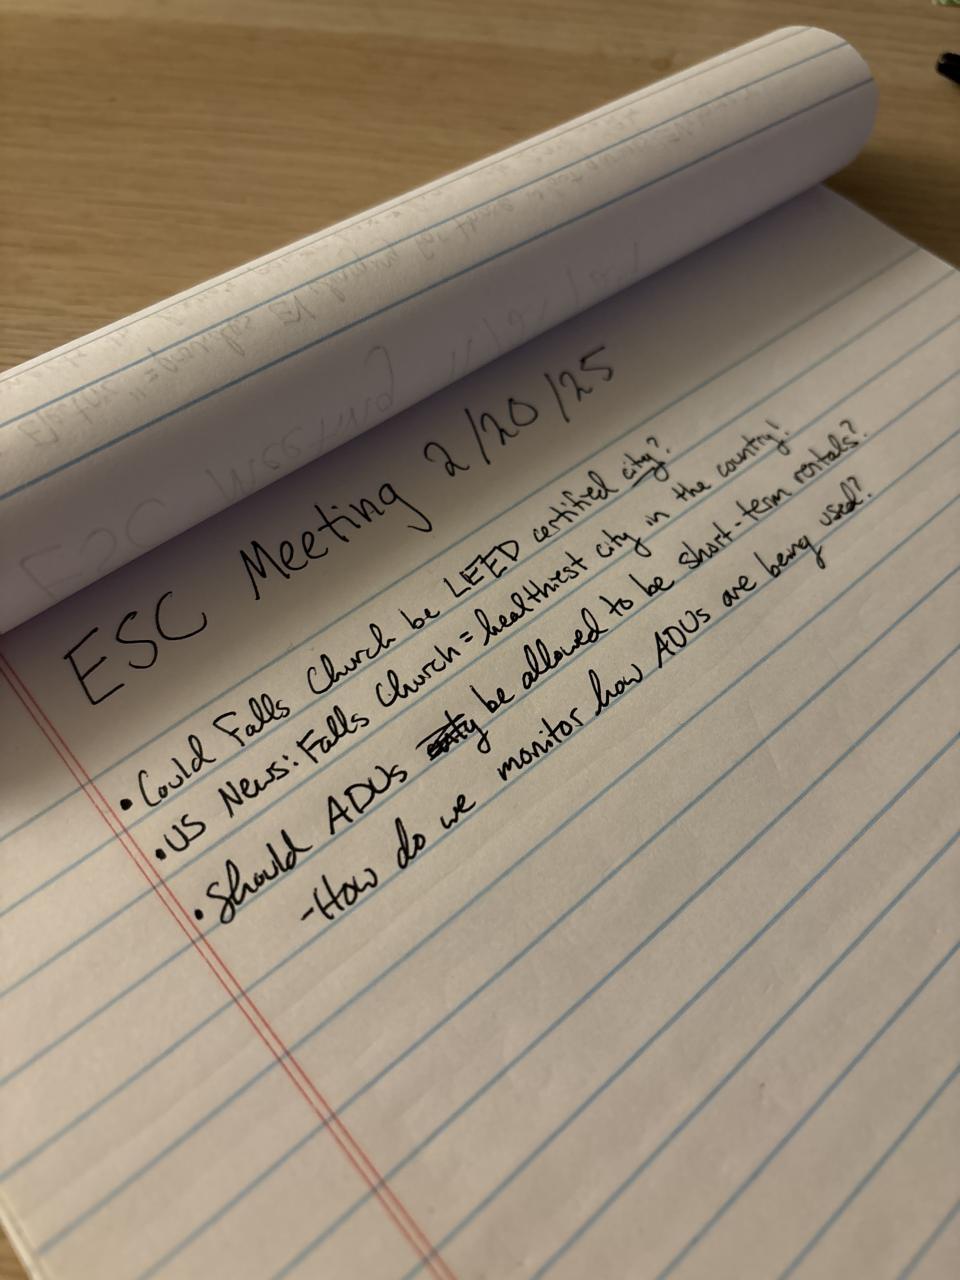 ESC Meeting 2/20/25
• Could Falls Church be LEED certified city?
• US News: Falls Church = healthiest city in the country!
• Should ADUs be allowed to be short-term rentals?
- How do we monitor how ADUs are being used?